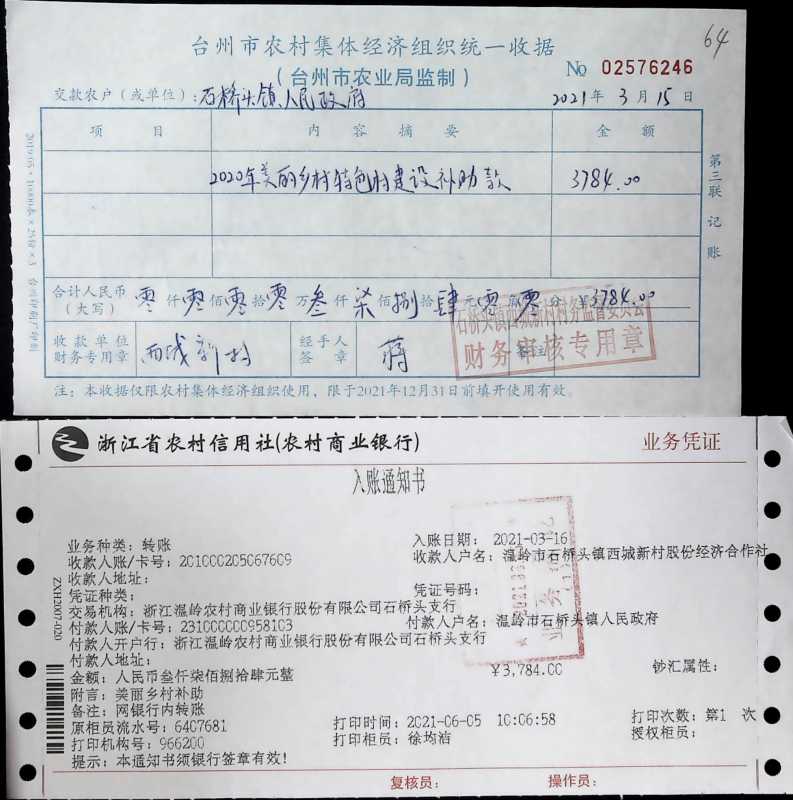 64
台州市农村集体经济组织统一收据
(台州市农业局监制)
№ 02576246
交款农户(或单位):石桥头镇人民政府 2021年3月15日
项 目 内 容 摘 要 金 额
2020年美丽乡村特色村建设补助款 3784.00
第三联 记账
合计人民币(大写) 零仟零佰零拾零万叁仟柒佰捌拾肆元零角零分 ¥3784.00
石桥头镇西城新村村务监督委员会
财务审核专用章
收款单位财务专用章 西城新村 经手人签章 蒋
注:本收据仅限农村集体经济组织使用,限于2021年12月31日前填开使用有效。
浙江省农村信用社(农村商业银行) 业务凭证
入账通知书
业务种类:转账 入账日期: 2021-03-16
收款人账/卡号:201000205067609 收款人户名:温岭市石桥头镇西城新村股份经济合作社
收款人地址:
凭证种类: 凭证号码:
交易机构:浙江温岭农村商业银行股份有限公司石桥头支行
付款人账/卡号:231000000958103 付款人户名:温岭市石桥头镇人民政府
付款人开户行:浙江温岭农村商业银行股份有限公司石桥头支行
付款人地址:
金额:人民币叁仟柒佰捌拾肆元整 ¥3,784.00 钞汇属性:
附言:美丽乡村补助
备注:网银行内转账
原柜员流水号:6407681 打印时间:2021-06-05 10:06:58 打印次数:第1 次
打印机构号:966200 打印柜员:徐均洁 授权柜员:
提示:本通知书须银行签章有效!
复核员: 操作员:
ZXH2007-020